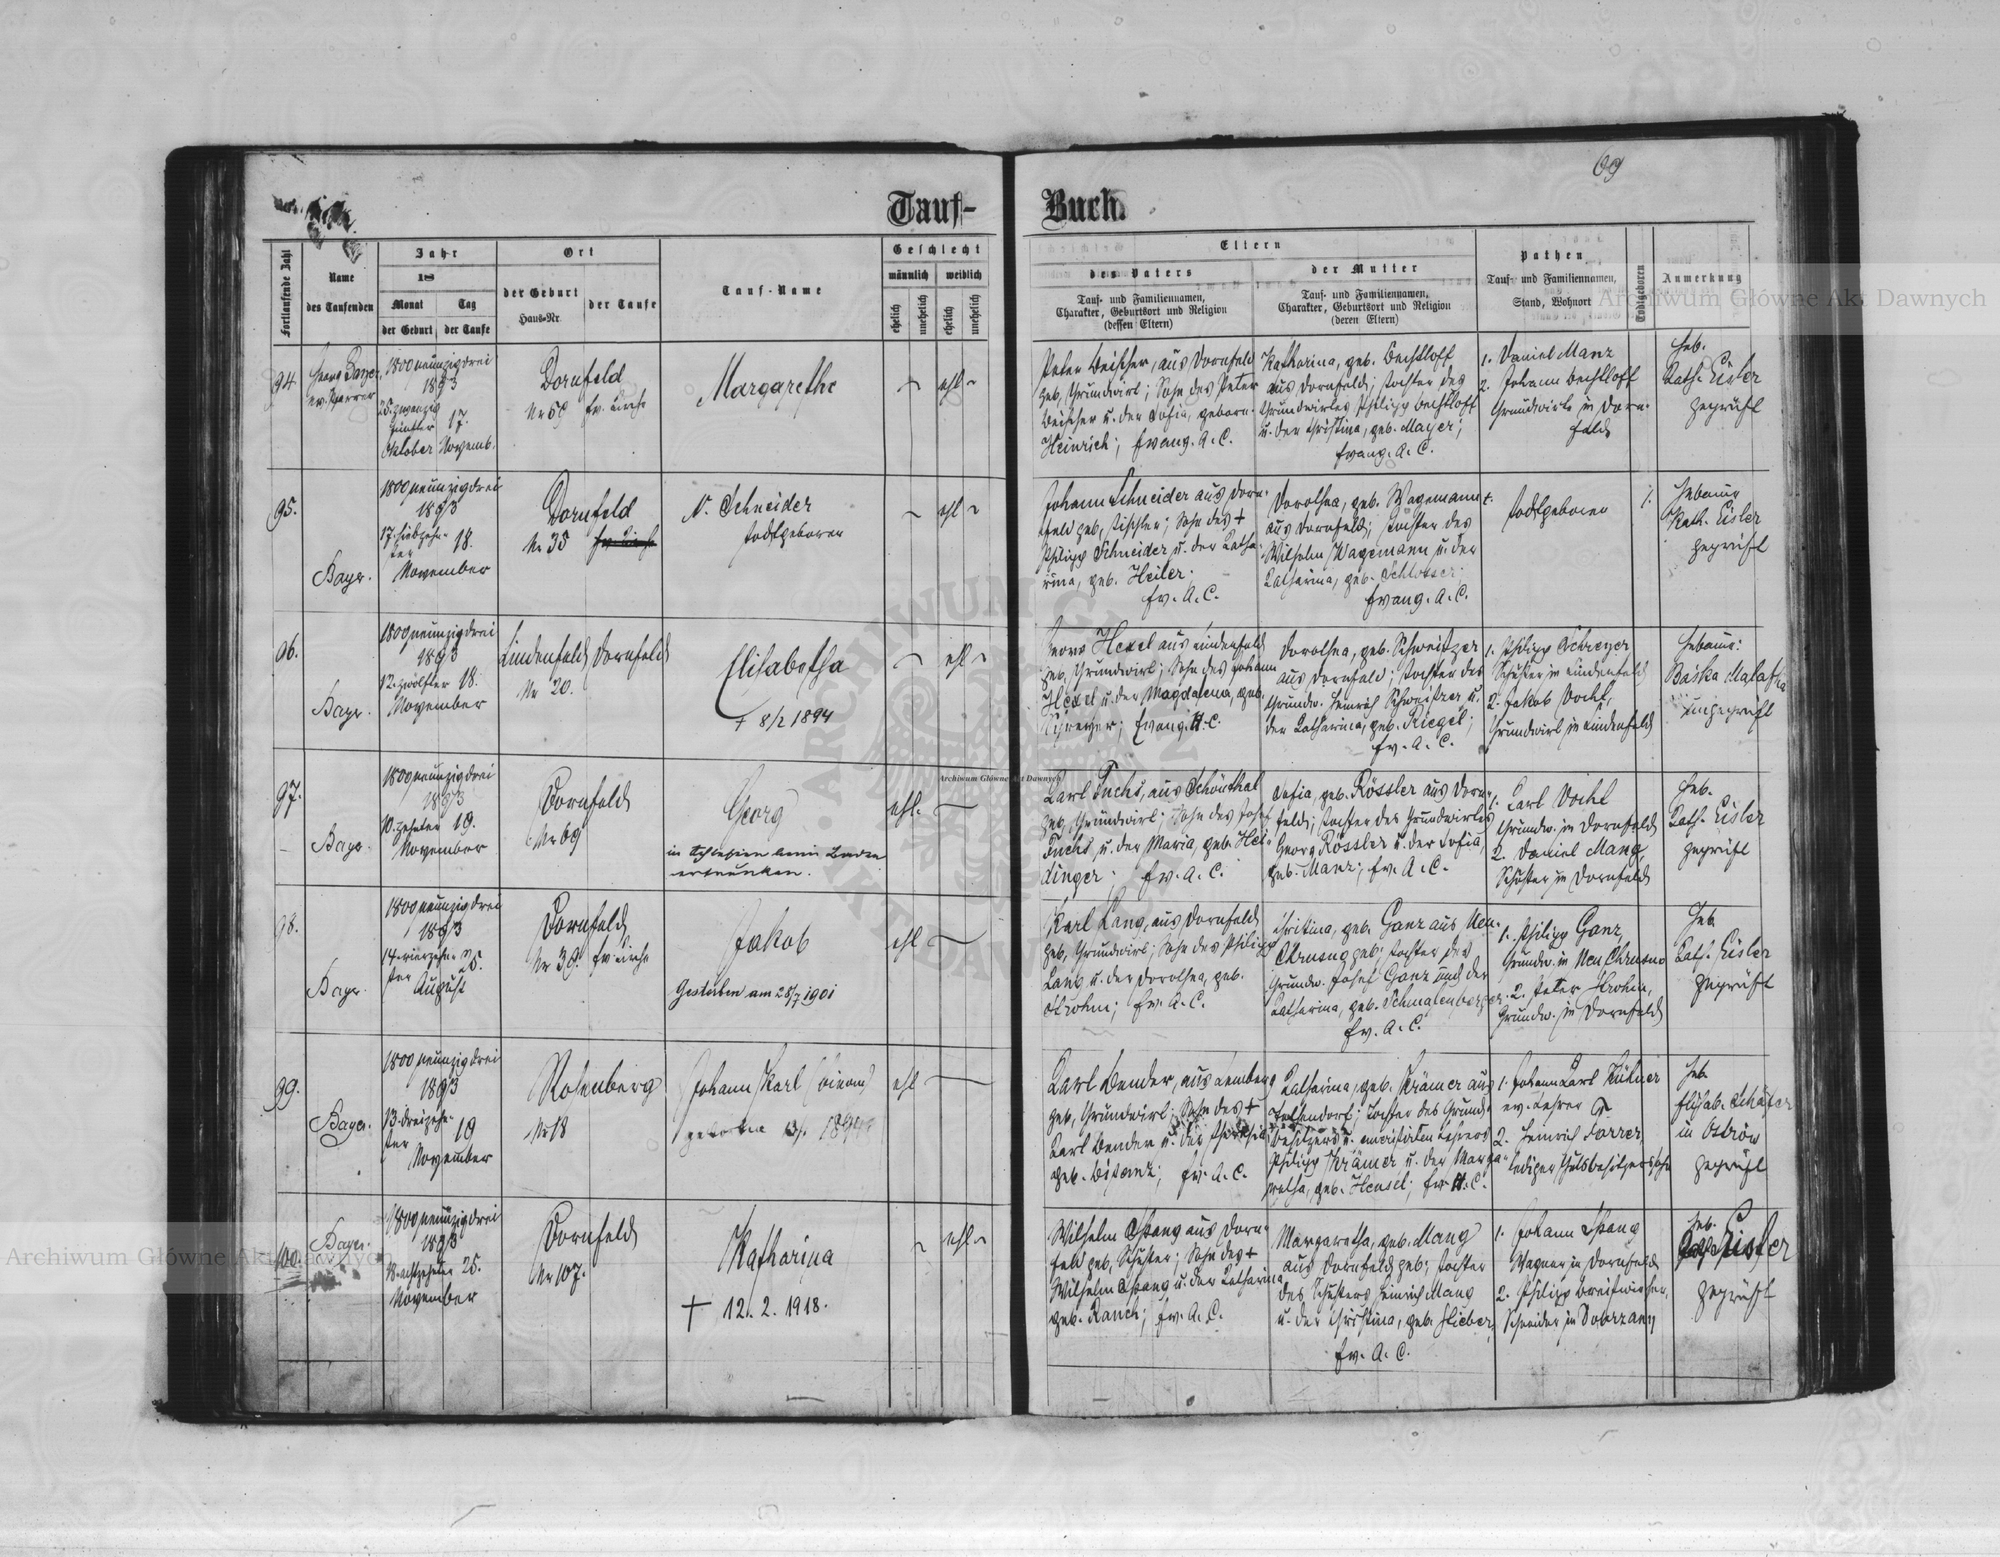 69
Tauf-
Buch.
Fortlaufende Zahl
Name
des Taufenden
Jahr
18
Monat
Tag
der Geburt
der Taufe
Ort
der Geburt
Haus-Nr.
der Taufe
Tauf-Name
Geschlecht
männlich
weiblich
ehelich
unehelich
ehelich
unehelich
Eltern
des Vaters
Tauf- und Familiennamen,
Charakter, Geburtsort und Religion
(dessen Eltern)
der Mutter
Tauf- und Familiennamen,
Charakter, Geburtsort und Religion
(deren Eltern)
Pathen
Tauf- und Familiennamen,
Stand, Wohnort
Todtgeboren
Anmerkung
94
Georg Bayer,
ev. Pfarrer
1800 neunzigdrei
1893
25. zwanzig
fünfter
Oktober
17.
Novemb.
Dornfeld
Nr 59
Ev. Kirche
Margarethe
ehl
Peter Beischer, aus Dornfeld
geb, Grundwirt; Sohn des Peter
Beischer u. der Sofia, geborn.
Heinrich; Evang. A. C.
Katharina, geb. Bechtloff
aus Dornfeld; Tochter des
Grundwirtes Philipp Bechtloff
u. der Christina, geb. Mayer;
Evang. A. C.
1. Daniel Manz
2. Johann Bechtloff
Grundwirte in Dorn-
feld
Heb.
Kath. Eisler
geprüft
95.
Bayer.
1800 neunzigdrei
1893
17. siebzehn-
ter
18.
November
Dornfeld
Nr 35
Ev. Kirche
N. Schneider
todtgeboren
ehl
Johann Schneider aus Dorn-
feld geb, Tischler; Sohn des +
Philipp Schneider u. der Katha-
rina, geb. Heiler.
Ev. A. C.
Dorothea, geb. Wagemann
aus Dornfeld; Tochter des
Wilhelm Wagemann u. der
Katharina, geb. Schlosser.
Evang. A. C.
todtgeboren
1.
Hebamme
Kath. Eisler
geprüft
96.
Bayer.
1800 neunzigdrei
1893
12. zwölfter 18.
November
Lindenfeld
Nr 20.
Dornfeld
Elisabetha
+ 8/2 1894
ehl
Hexel aus Lindenfeld
geb, Grundwirt; Sohn des Johann
Hexel u. der Magdalena, geb.
Schreyer; Evang. H. C.
Dorothea, geb. Schweitzer
aus Dornfeld; Tochter des
Grundw. Heinrich Schweitzer u.
der Katharina, geb. Riegel;
Ev. A. C.
1. Philipp Schreyer
Schuster in Lindenfeld
2. Jakob Vocht,
Grundwirt in Lindenfeld
Hebamme:
Baśka Malafka
ungeprüft
97.
Bayer.
1800 neunzigdrei
1893
10. zehnter 19.
November
Dornfeld
Nr 69
Georg
in Schlesien beim Baden
ertrunken.
ehl.
Karl Fuchs, aus Schönthal
geb, Grundwirt; Sohn des Josef
Fuchs, u. der Maria, geb. Hei-
dinger; Ev. A. C.
Sofia, geb. Rössler aus Dorn-
feld; Tochter des Grundwirtes
Georg Rössler u. der Sofia,
geb. Manz; Ev. A. C.
1. Karl Vocht
Grundw. in Dornfeld
2. Daniel Mang,
Schuster in Dornfeld
Heb.
Kath. Eisler
geprüft
98.
Bayer.
1800 neunzigdrei
1893
14. vierzehn-
ter
25.
August
Dornfeld
Nr 39.
Ev. Kirche
Jakob
Gestorben am 28/7 1901
ehl
Karl Lang, aus Dornfeld
geb, Grundwirt; Sohn des Philipp
Lang u. der Dorothea, geb.
Krohm; Ev. A. C.
Christina, geb. Ganz aus Neu-
Chrusno geb; Tochter des
Grundw. Josef Ganz und der
Katharina, geb. Schmalenberger.
Ev. A. C.
1. Philipp Ganz,
Grundw. in Neu Chrusno
2. Peter Krohm,
Grundw. in Dornfeld
Heb.
Kath. Eisler
geprüft
99.
Bayer.
1800 neunzigdrei
1893
13. dreizehn-
ter
19
November
Rosenberg
Nr 18
Johann Karl
ehl
Karl Bender, aus Lemberg
geb, Grundwirt; Sohn des +
Karl Bender u. der
geb. Bisanz; Ev. A. C.
Katharina, geb. Krämer aus
Falkendorf; Tochter des Grund-
besitzers u. emeritirten Lehrers
Philipp Krämer u. der Marga-
retha, geb. Hensel; Ev. H. C.
1. Johann Karl Kühner
ev. Lehrer
2. Heinrich Forrer,
lediger Gutsbesitzerssohn
Heb.
Elisab. Schäfer
in Ostrów
geprüft
100.
Bayer.
1800 neunzigdrei
1893
18. achtzehnter 25.
November
Dornfeld
Nr 107.
Katharina
+ 12. 2. 1918.
ehl.
Wilhelm Spang aus Dorn-
feld geb, Schuster; Sohn des +
Wilhelm Spang u. der Katharina
geb. Rauch; Ev. A. C.
Margaretha, geb. Mang
aus Dornfeld geb; Tochter
des Schusters Heinrich Mang
u. der Christina, geb. Hieber,
Ev. A. C.
1. Johann Spang
Wagner in Dornfeld
2. Philipp Breitwieser,
Schneider in Dobrzany
Heb.
Kath. Eisler
geprüft
Archiwum Główne Akt Dawnych
Archiwum Główne Akt Dawnych
Archiwum Główne Akt Dawnych